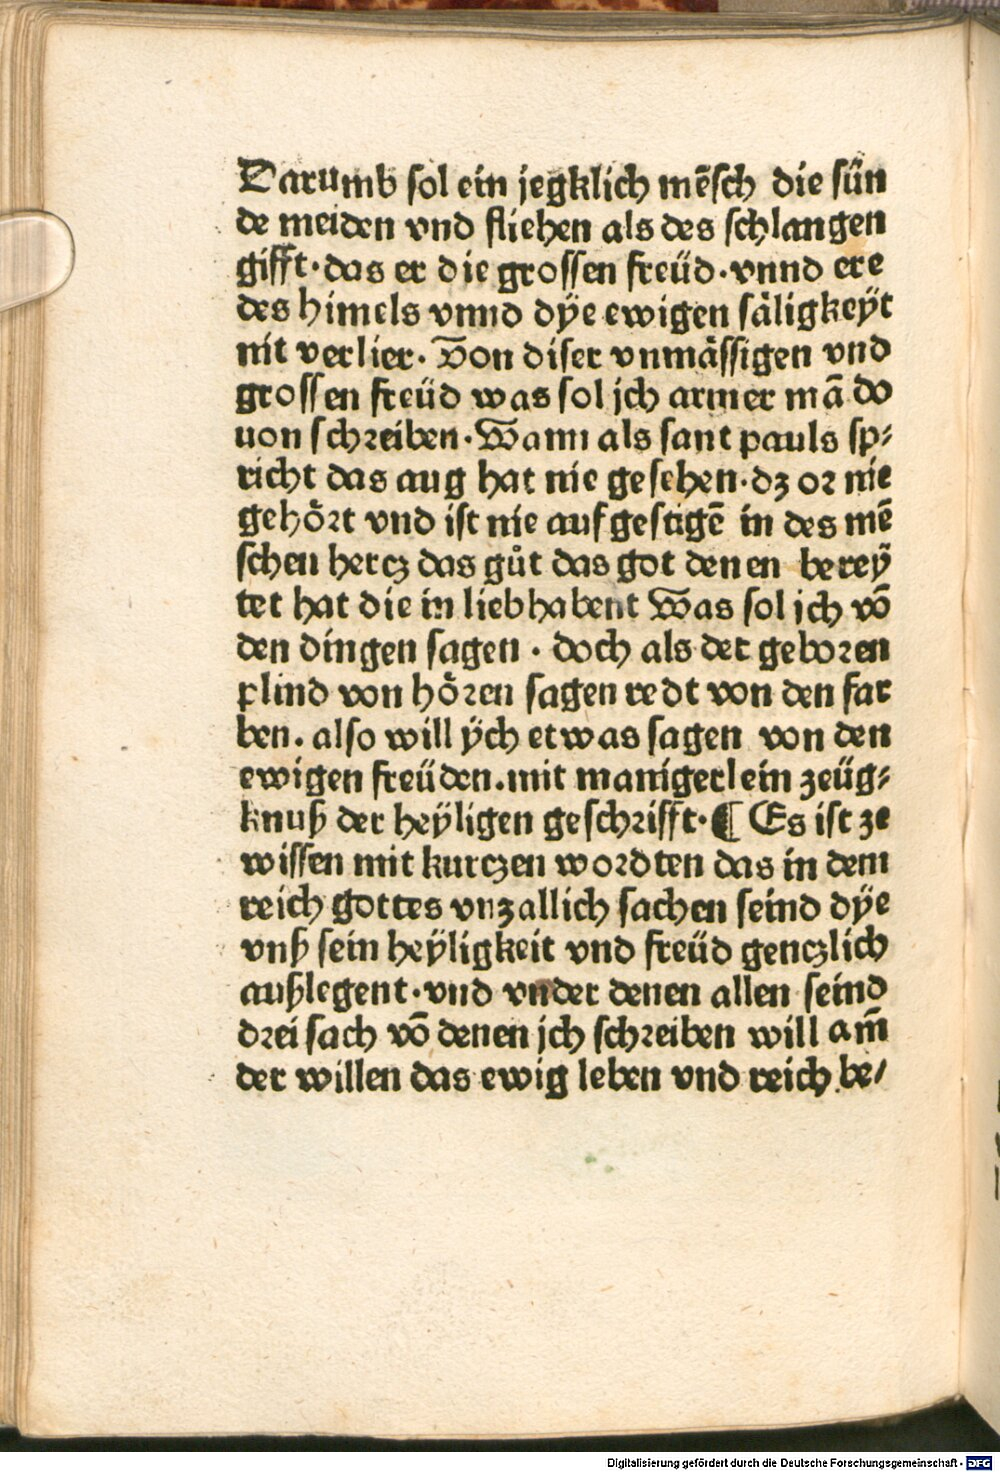 Darumb sol ein jegklich mēsch die sün
de meiden vnd fliehen als des schlangen
gifft·das er die grossen freüd·vnnd ere
des himels vnnd dÿe ewigen säligkeÿt
nit verlier· Von diser vnmässigen vnd
grossen freüd was sol jch armer mā do
uon schreiben·Wann als sant pauls sp⸗
richt das aug hat nie gesehen·dz or nie
gehört vnd ist nie aufgestigē in des mē
schen hercz das gůt das got denen bereÿ
tet hat die in liebhabent Was sol ich vō
den dingen sagen · doch als der geboren
plind von hören sagen redt von den far
ben. also will ÿch etwas sagen von den
ewigen freüden.mit manigerlein zeüg⸗
knuß der heÿligen geschrifft·¶ Es ist ze
wissen mit kurczen wordten das in dem
reich gottes vnzallich sachen seind dÿe
vnß sein heÿligkeit vnd freüd genczlich
außlegent·vnd vnder denen allen seind
drei sach vō denen jch schreiben will am̄
der willen das ewig leben vnd reich be/
Digitalisierung gefördert durch die Deutsche Forschungsgemeinschaft - DFG